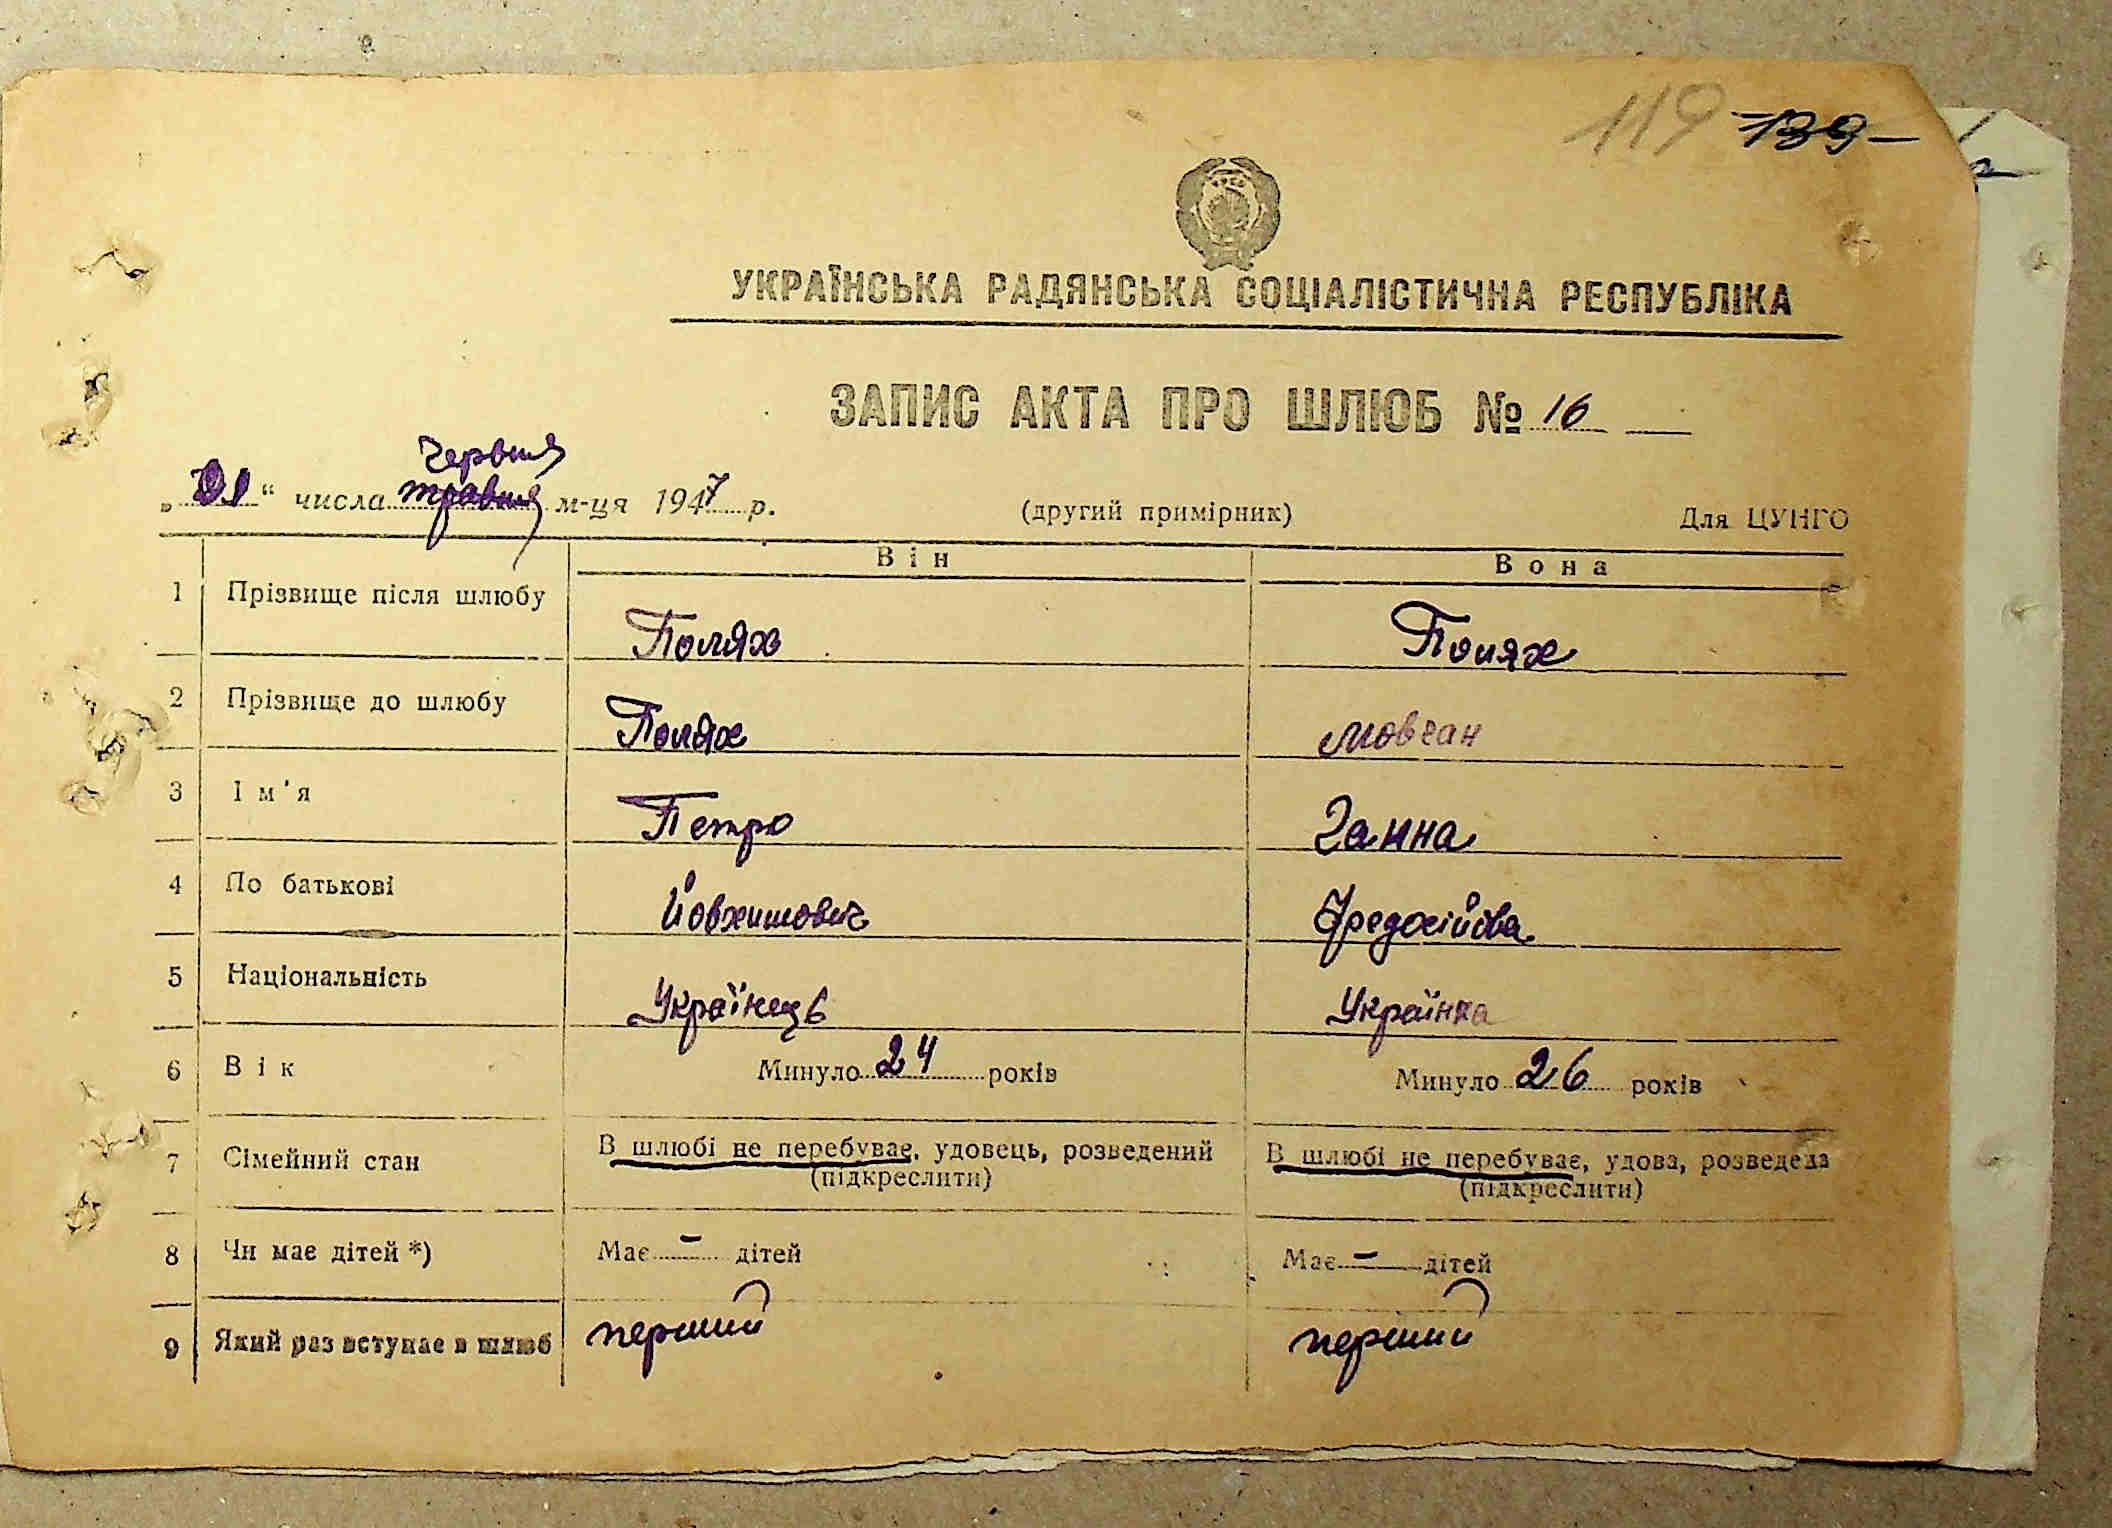 119 139
УКРАЇНСЬКА РАДЯНСЬКА СОЦІАЛІСТИЧНА РЕСПУБЛІКА
ЗАПИС АКТА ПРО ШЛЮБ № 16
червня
„01“ числа травня м-ця 1947 р. (другий примірник) Для ЦУНГО
Він Вона
1 Прізвище після шлюбу Полях Полях
2 Прізвище до шлюбу Полях Мовчан
3 Ім'я Петро Ганна
4 По батькові Йовхимович Фредосіївва
5 Національність Українець Українка
6 Вік Минуло 24 років Минуло 26 років
7 Сімейний стан В шлюбі не перебуває, удовець, розведений В шлюбі не перебуває, удова, розведена
(підкреслити) (підкреслити)
8 Чи має дітей *) Має - дітей Має - дітей
9 Який раз вступає в шлюб перший перший